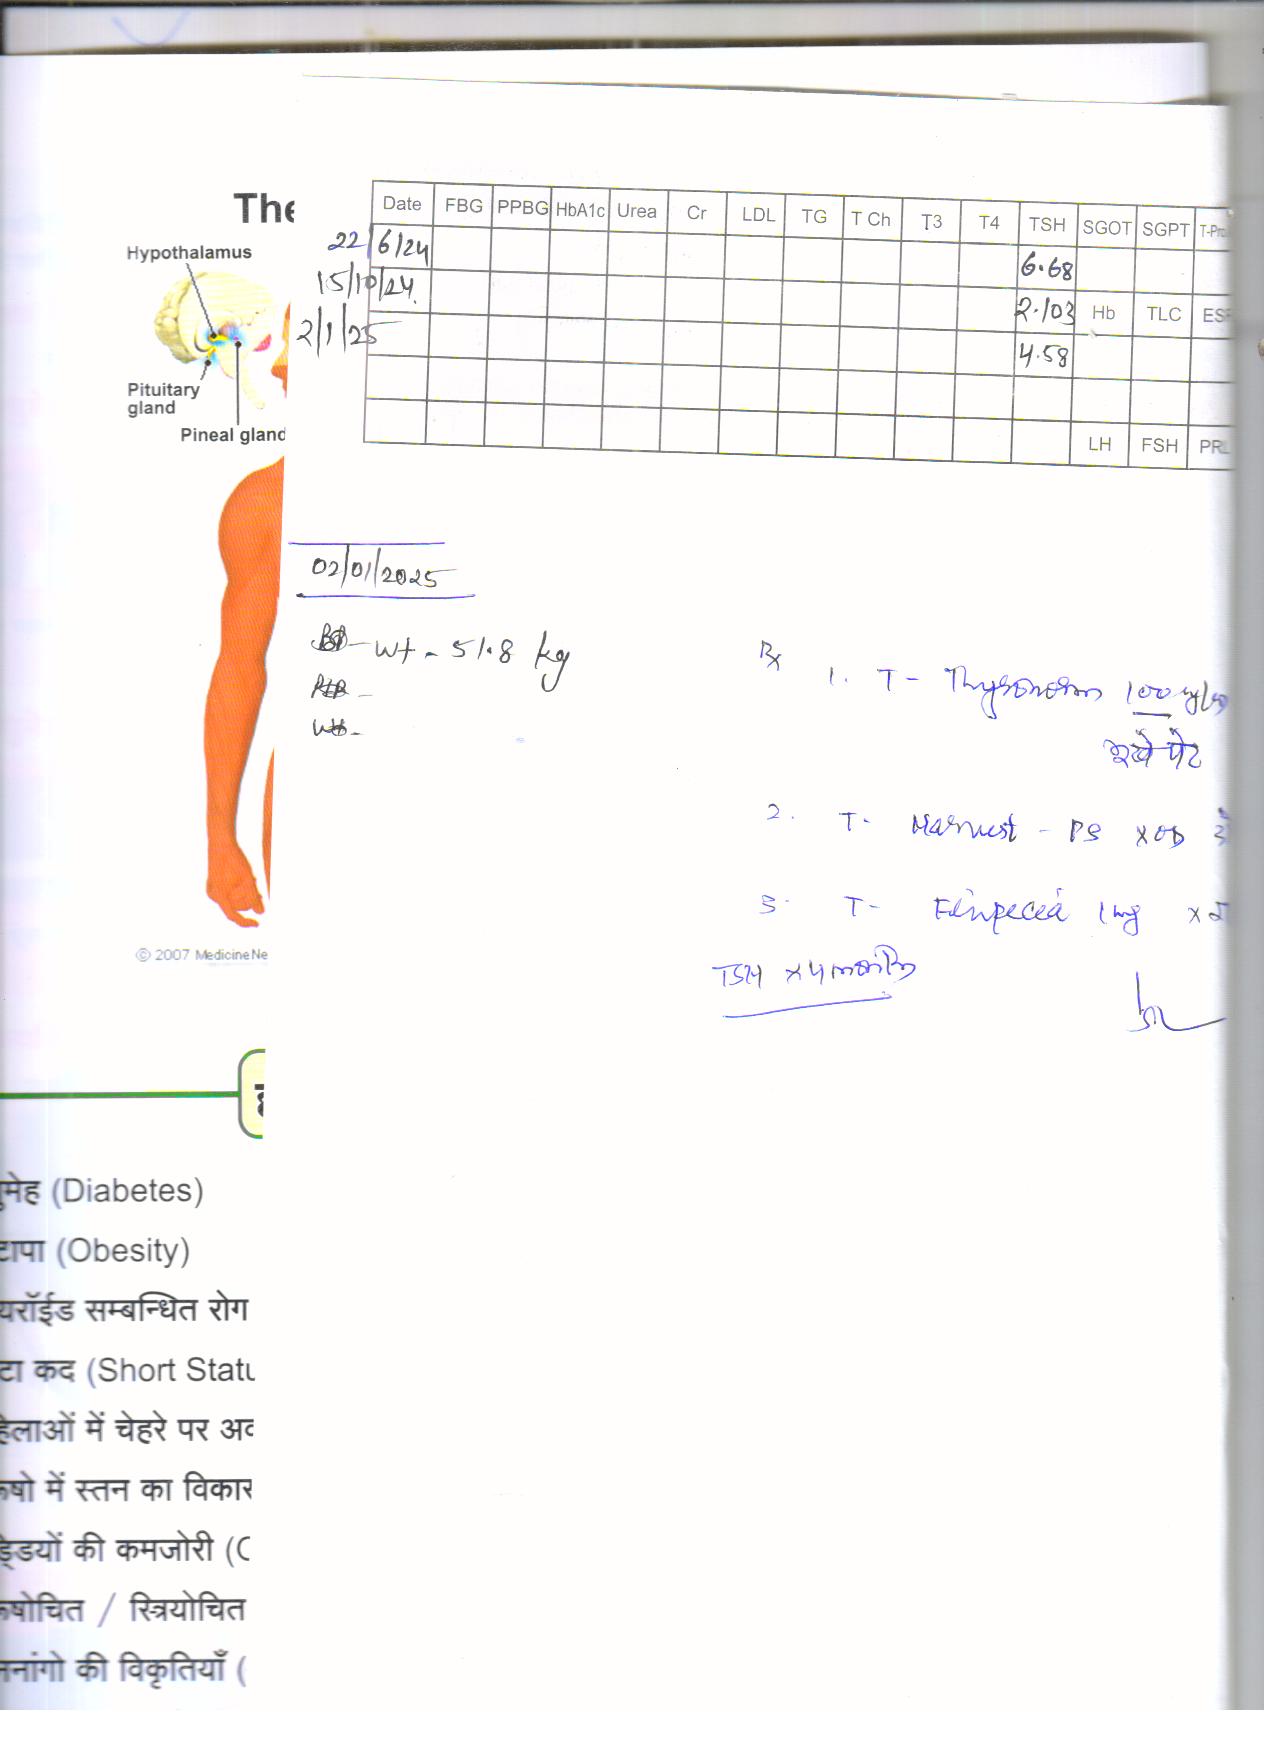 The
Hypothalamus
Pituitary
gland
Pineal gland
Date FBG PPBG HbA1c Urea Cr LDL TG T Ch T3 T4 TSH SGOT SGPT T-Pro
22/6/24 6.68
15/10/24 2.103 Hb TLC ES
2/1/25 4.58
LH FSH PRL
02/01/2025
BP - Wt - 51.8 kg
Wt -
Rx
1. T - Thyronorm 100
2. T - - PS x OD
3. T - Finpecia 1mg x
TSH x 4 months
© 2007 MedicineNe
ुमेह (Diabetes)
टापा (Obesity)
यरॉईड सम्बन्धित रोग
टा कद (Short Statu
हिलाओं में चेहरे पर अव
रूषो में स्तन का विकार
ड्डियों की कमजोरी (O
रूषोचित / स्त्रियोचित
ननांगो की विकृतियाँ (